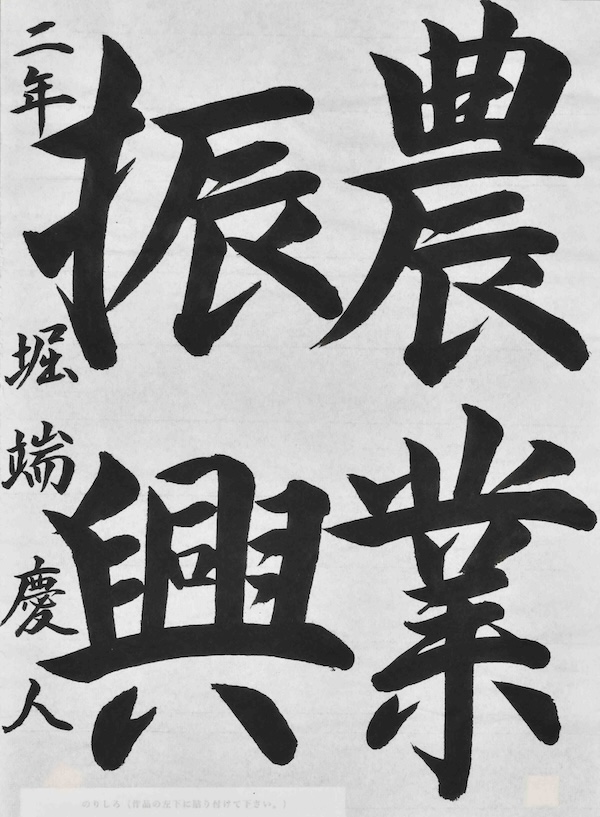 農業
振興
二年 堀端慶人
のりしろ（作品の左下に貼り付けて下さい。）